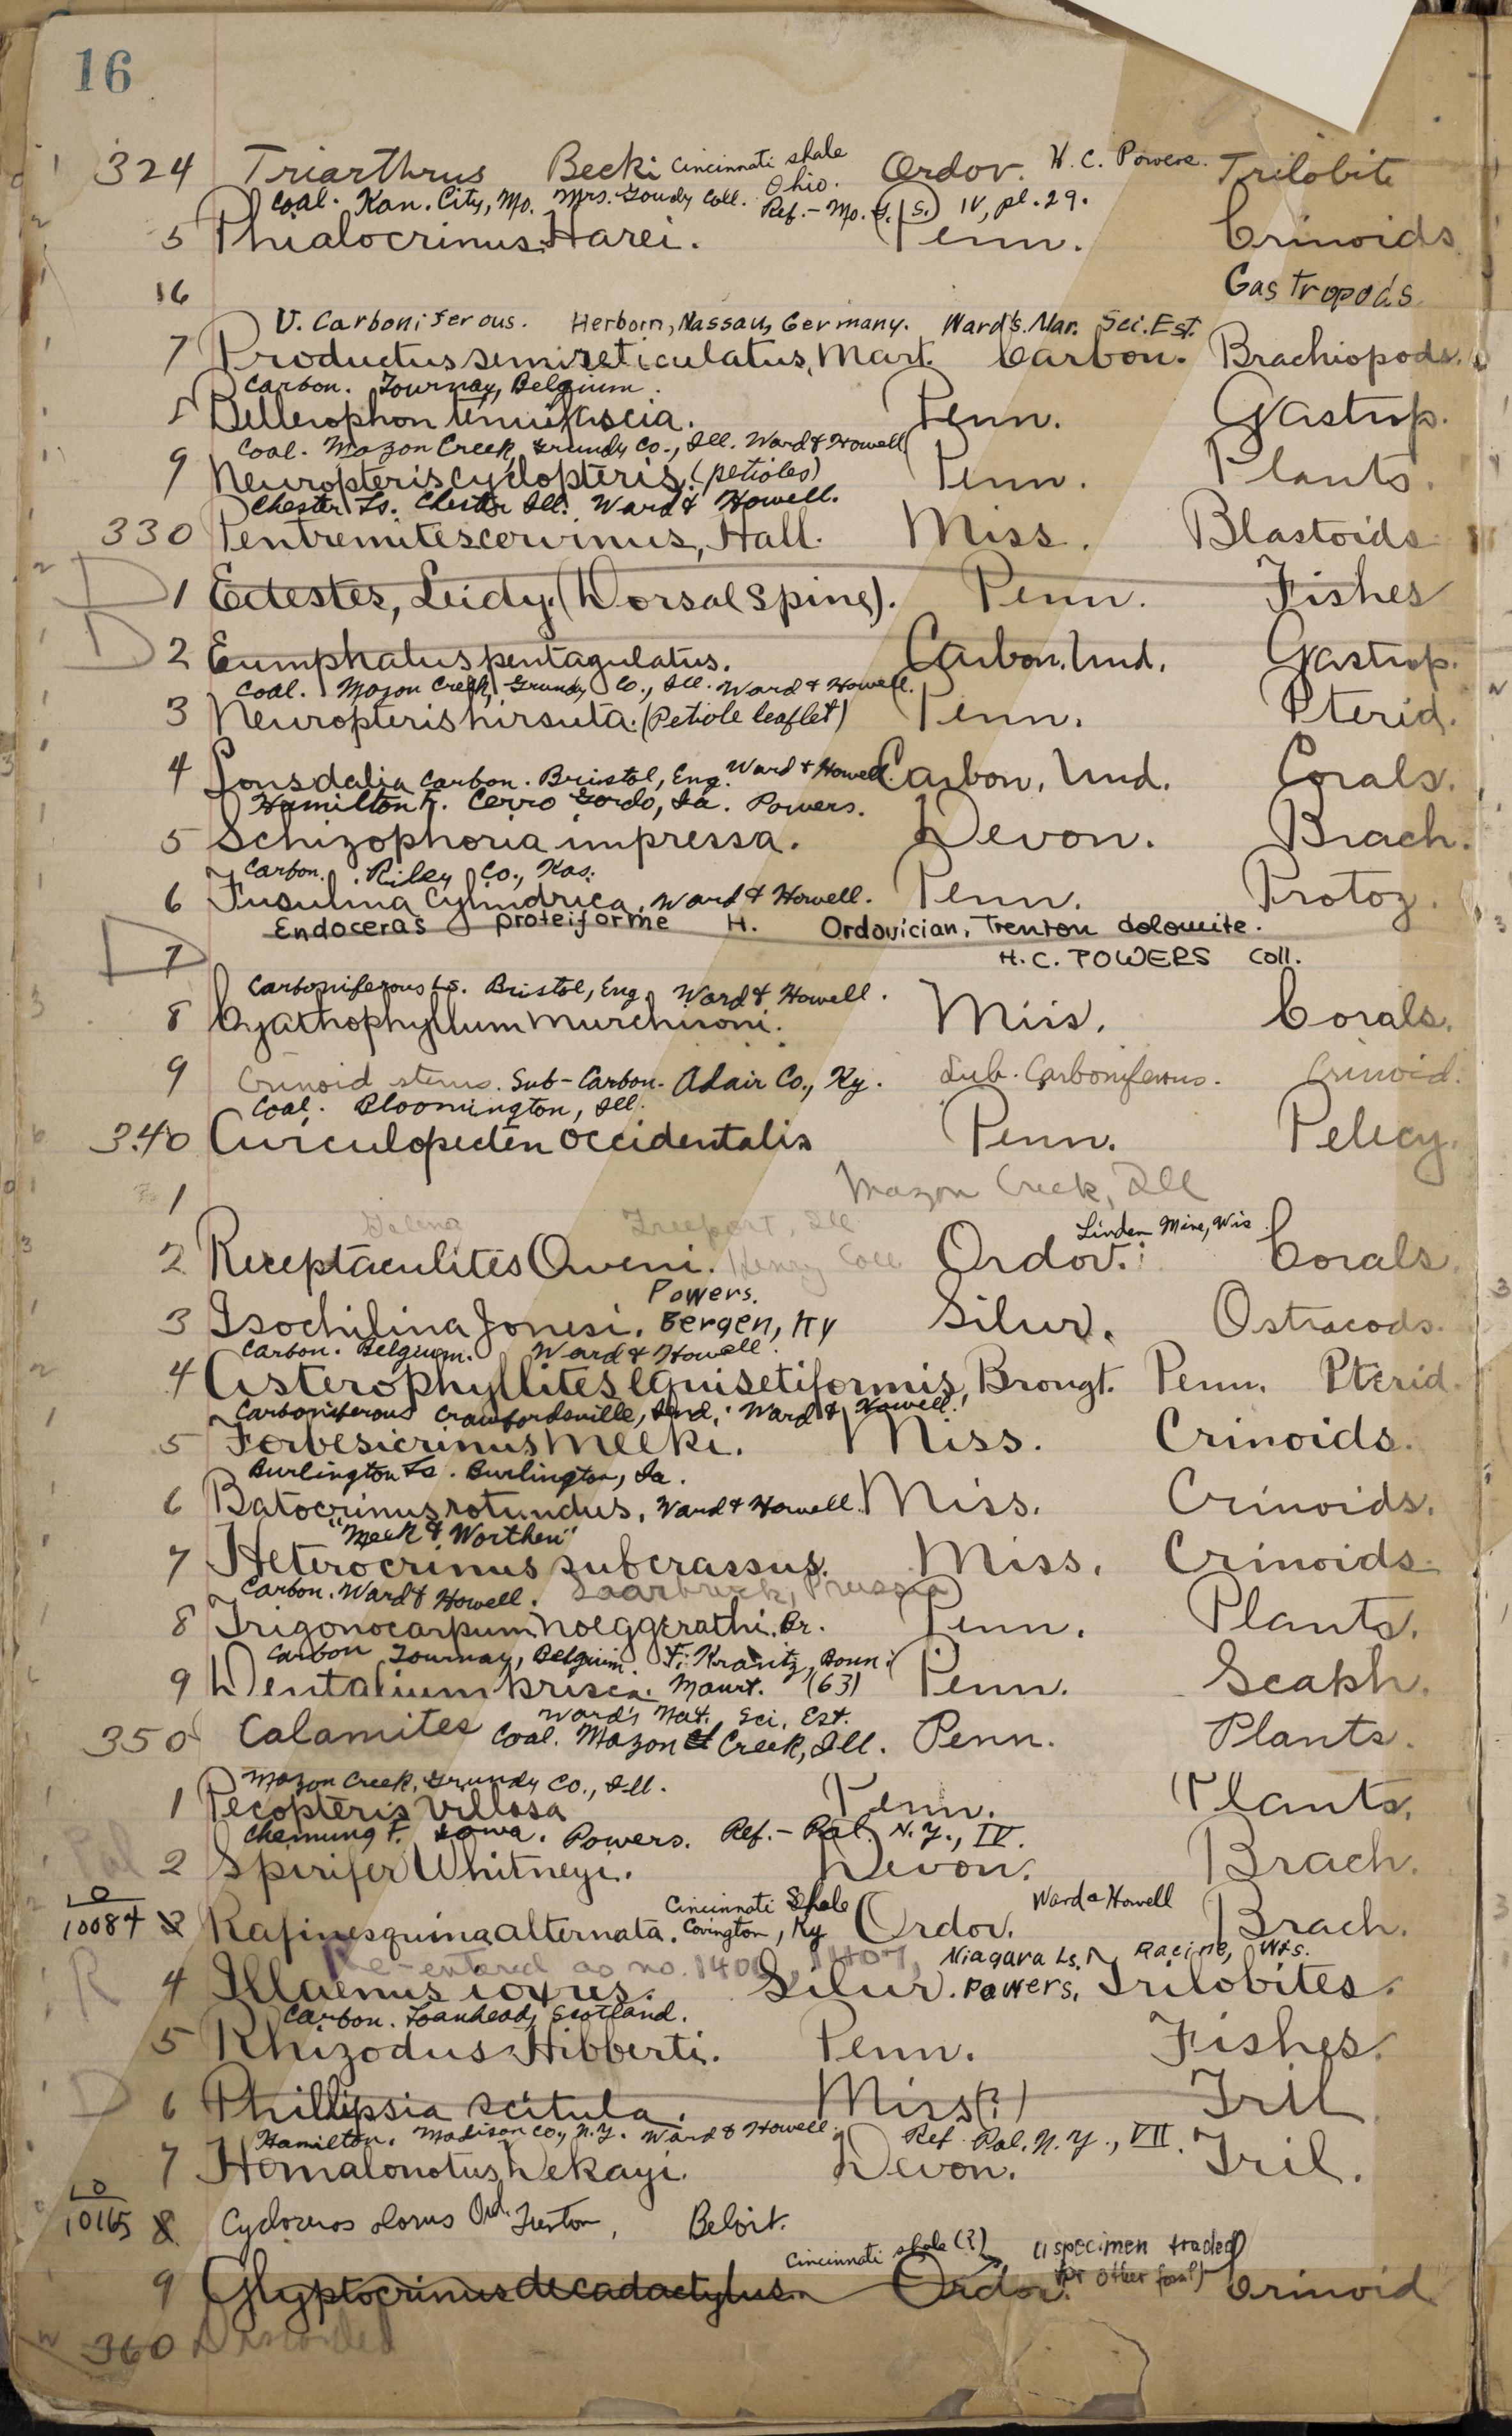 16
324 Triarthrus Becki Cincinnati shale Ohio. Ordov. H. C. Powers. Trilobite
Coal. Kan. City, Mo. Mrs. Goudy Coll. Ref. - Mo. G. (S.) IV, pl. 29.
5 Phialocrinus Harei. Penn. Crinoids
16 Gastropods
U. Carboniferous. Herborn, Nassau, Germany. Ward's. Nar. Sci. Est.
7 Productus semireticulatus, Mart. Carbon. Brachiopods.
Carbon. Tournay, Belgium.
Bellerophon tenuifascia. Penn. Gastrop.
Coal. Mazon Creek, Grundy Co., Ill. Ward & Howell
9 Neuropteris cyclopteris. (petioles) Penn. Plants.
Chester Ls. Chester Ill. Ward & Howell.
330 Pentremites cervinus, Hall. Miss. Blastoids
D 1 Edestes, Leidy. (Dorsal Spine). Penn. Fishes
D 2 Eumphalus pentagulatus. Carbon. Und. Gastrop.
Coal. Mazon Creek, Grundy Co., Ill. Ward & Howell.
3 Neuropteris hirsuta. (Petiole leaflet) Penn. Pterid.
4 Lonsdalia Carbon. Bristol, Eng. Ward & Howell. Carbon. Und. Corals.
Hamilton F. Cerro Gordo, Ia. Powers.
5 Schizophoria impressa. Devon. Brach.
Carbon. Riley Co., Kas.
6 Fusulina Cylindrica. Ward & Howell. Penn. Protoz.
Endoceras proteiforme H. Ordovician, Trenton dolomite.
D 7 H. C. POWERS Coll.
Carboniferous Ls. Bristol, Eng. Ward & Howell.
8 Cyathophyllum Murchisoni. Miss. Corals.
9 Crinoid stems. Sub-Carbon. Adair Co., Ky. Sub. Carboniferous. Crinoid.
Coal. Bloomington, Ill.
340 Aviculopecten occidentalis Penn. Pelecy.
1 Mazon Creek, Ill
Galena Freeport, Ill Linden Mine, Wis.
2 Receptaculites Oweni. Henry Coll Ordov. Corals.
Powers.
3 Isochilina Jonesi. Bergen, Ky Silur. Ostracods.
Carbon. Belgium. Ward & Howell.
4 Asterophyllites equisetiformis, Brongt. Penn. Pterid.
Carboniferous Crawfordsville, Ind. Ward & Howell.
5 Forbesicrinus Meeki. Miss. Crinoids.
Burlington Ls. Burlington, Ia.
6 Batocrinus rotundus. Ward & Howell. Miss. Crinoids.
"Meek & Worthen"
7 Heterocrinus subcrassus. Miss. Crinoids.
Carbon. Ward & Howell. Saarbruck, Prussia
8 Trigonocarpum Noeggerathi. Br. Penn. Plants.
Carbon Tournay, Belgium. F. Krantz, Bonn.
9 Dentalium prisca. Mount. (63) Penn. Scaph.
Ward's Nat. Sci. Est.
350 Calamites Coal. Mazon Creek, Ill. Penn. Plants.
Mazon Creek, Grundy Co., Ill.
1 Pecopteris Villosa Penn. Plants.
Chemung F. Iowa. Powers. Ref. - Pal. N.Y., IV.
Pal 2 Spirifer Whitneyi. Devon. Brach.
Cincinnati Shale Ward & Howell
10084 3 Rafinesquina alternata. Covington, Ky Ordov. Brach.
Re-entered as no. 1406, 1407, Niagara Ls. Racine, Wis.
R 4 Illaenus ioxus. Silur. Powers. Trilobites.
Carbon. Loanhead, Scotland.
5 Rhizodus Hibberti. Penn. Fishes.
D 6 Phillipsia scitula. Miss(?) Tril
Hamilton. Madison Co., N.Y. Ward & Howell. Ref Pal. N.Y., VII.
7 Homalonotus Dekayi. Devon. Tril.
10165 8 Cycloceras olorus Ord. Trenton, Beloit.
Cincinnati shale (?) (1 specimen traded
for other fossil)
9 Glyptocrinus decadactylus. Ordov. Crinoid
360 Discarded